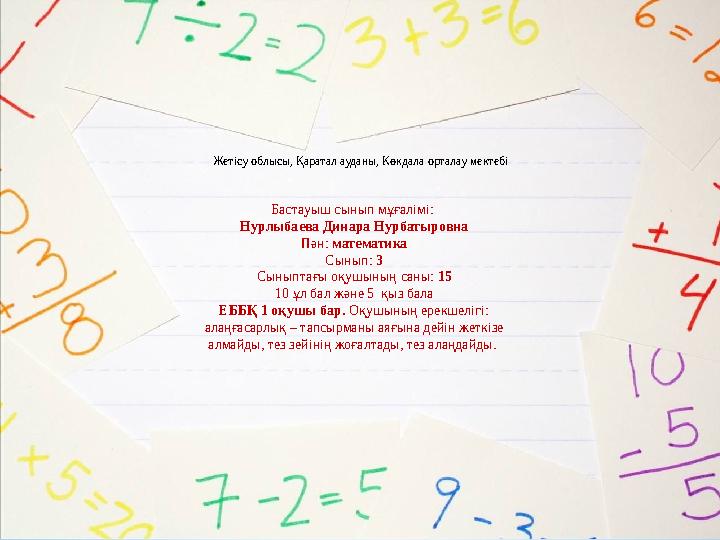 7÷2=2
3+3=6
6=
Жетісу облысы, Қаратал ауданы, Көкдала орталау мектебі
Бастауыш сынып мұғалімі:
Нурлыбаева Динара Нурбатыровна
Пән: математика
Сынып: 3
Сыныптағы оқушының саны: 15
10 ұл бал және 5 қыз бала
ЕББҚ 1 оқушы бар. Оқушының ерекшелігі:
алаңғасарлық – тапсырманы аяғына дейін жеткізе
алмайды, тез зейінің жоғалтады, тез алаңдайды.
3
+ 8
+ 1
4
10
- 5
5
+5=20
7-2=5
9-3=